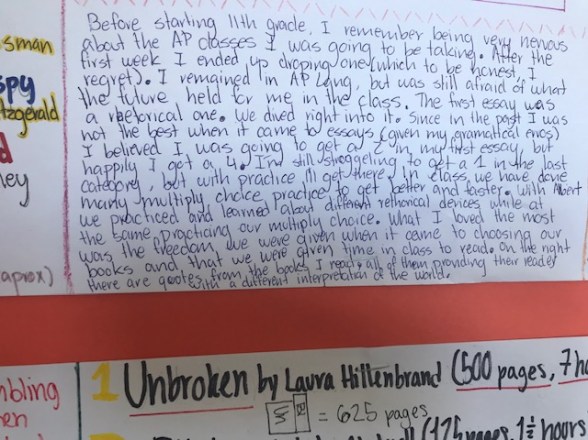 Before starting 11th grade, I remember being very nervous
about the AP classes I was going to be taking. After the
first week I ended up droping one (which to be honest, I
regret). I remained in AP Lang, but was still afraid of what
the future held for me in the class. The first essay was
a rhetorical one. We dived right into it. Since in the past I was
not the best when it came to essays (given my gramatical errors)
I believed I was going to get a 2 in my first essay, but
happily I got a 4. I'm still struggeling to get a 1 in the last
category, but with practice I'll get there. In class, we have done
many multiply choice practice to get better and faster. With Albert
we practiced and learned about different rethorical devices while at
the same, practicing our multiply choice. What I loved the most
was the freedom we were given when it came to choosing our
books and that we were given time in class to read. On the right
there are quotes from the books I read, all of them providing their reader
with a different interpretation of the world.
sman
spy
tzgerald
d
ley
aprox)
mbling
en
1 Unbroken by Laura Hillenbrand (500 pages, 7 ho
= 625 pages
hours